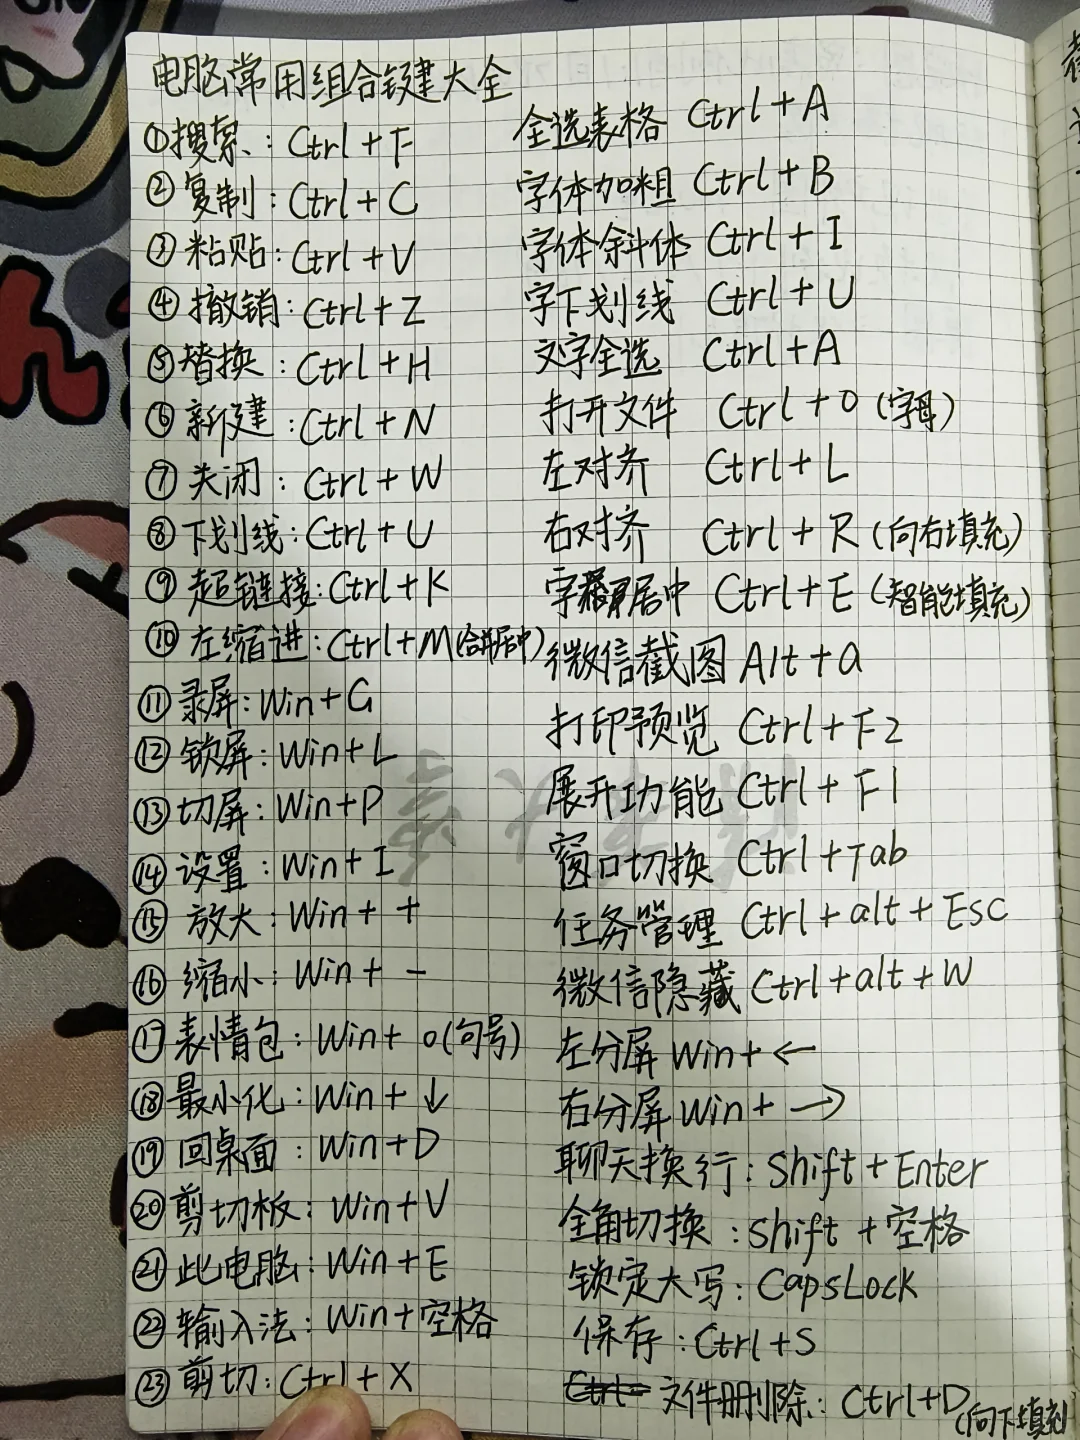 电脑常用组合键大全
①搜索：Ctrl+F
②复制：Ctrl+C
③粘贴：Ctrl+V
④撤销：Ctrl+Z
⑤替换：Ctrl+H
⑥新建：Ctrl+N
⑦关闭：Ctrl+W
⑧下划线：Ctrl+U
⑨超链接：Ctrl+K
⑩左缩进：Ctrl+M(合并居中)
⑪录屏：Win+G
⑫锁屏：Win+L
⑬切屏：Win+P
⑭设置：Win+I
⑮放大：Win++
⑯缩小：Win+-
⑰表情包：Win+。(句号)
⑱最小化：Win+↓
⑲回桌面：Win+D
⑳剪切板：Win+V
㉑此电脑：Win+E
㉒输入法：Win+空格
㉓剪切：Ctrl+X
全选表格 Ctrl+A
字体加粗 Ctrl+B
字体斜体 Ctrl+I
字下划线 Ctrl+U
文字全选 Ctrl+A
打开文件 Ctrl+O(字母)
左对齐 Ctrl+L
右对齐 Ctrl+R(向右填充)
字居中 Ctrl+E(智能填充)
微信截图 Alt+a
打印预览 Ctrl+F2
展开功能 Ctrl+F1
窗口切换 Ctrl+Tab
任务管理 Ctrl+alt+Esc
微信隐藏 Ctrl+alt+W
左分屏 Win+←
右分屏 Win+→
聊天换行：Shift+Enter
全角切换：shift+空格
锁定大写：CapsLock
保存：Ctrl+S
文件删除：Ctrl+D(向下填充)